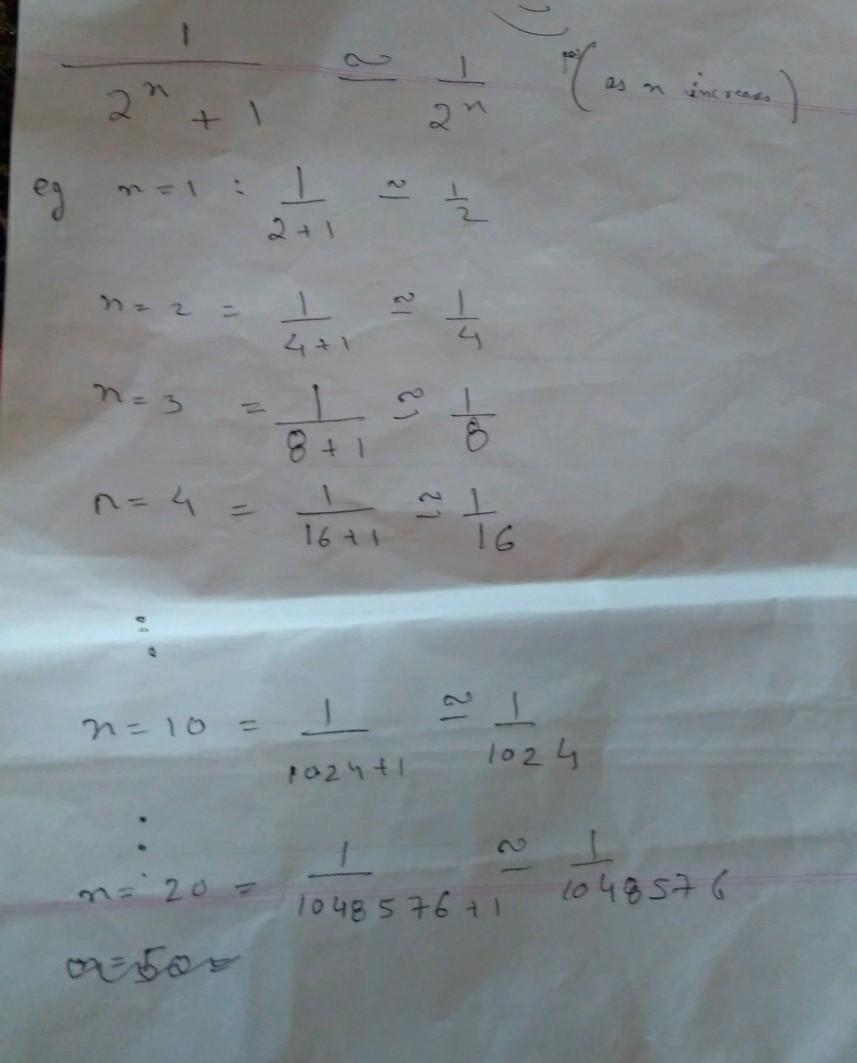 1/(2^n + 1) ≅ 1/2^n (as n increases)
eg n=1 : 1/(2+1) ≅ 1/2
n=2 = 1/(4+1) ≅ 1/4
n=3 = 1/(8+1) ≅ 1/8
n=4 = 1/(16+1) ≅ 1/16
⋮
n=10 = 1/(1024+1) ≅ 1/1024
⋮
n=20 = 1/(1048576+1) ≅ 1/1048576